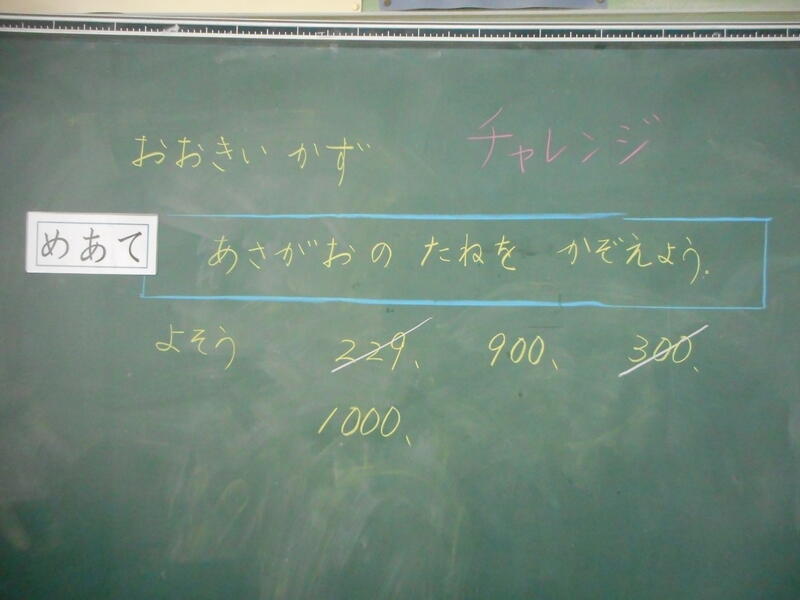 おおきい かず チャレンジ
めあて あさがおの たねを かぞえよう.
よそう 229、 900、 300、
1000、